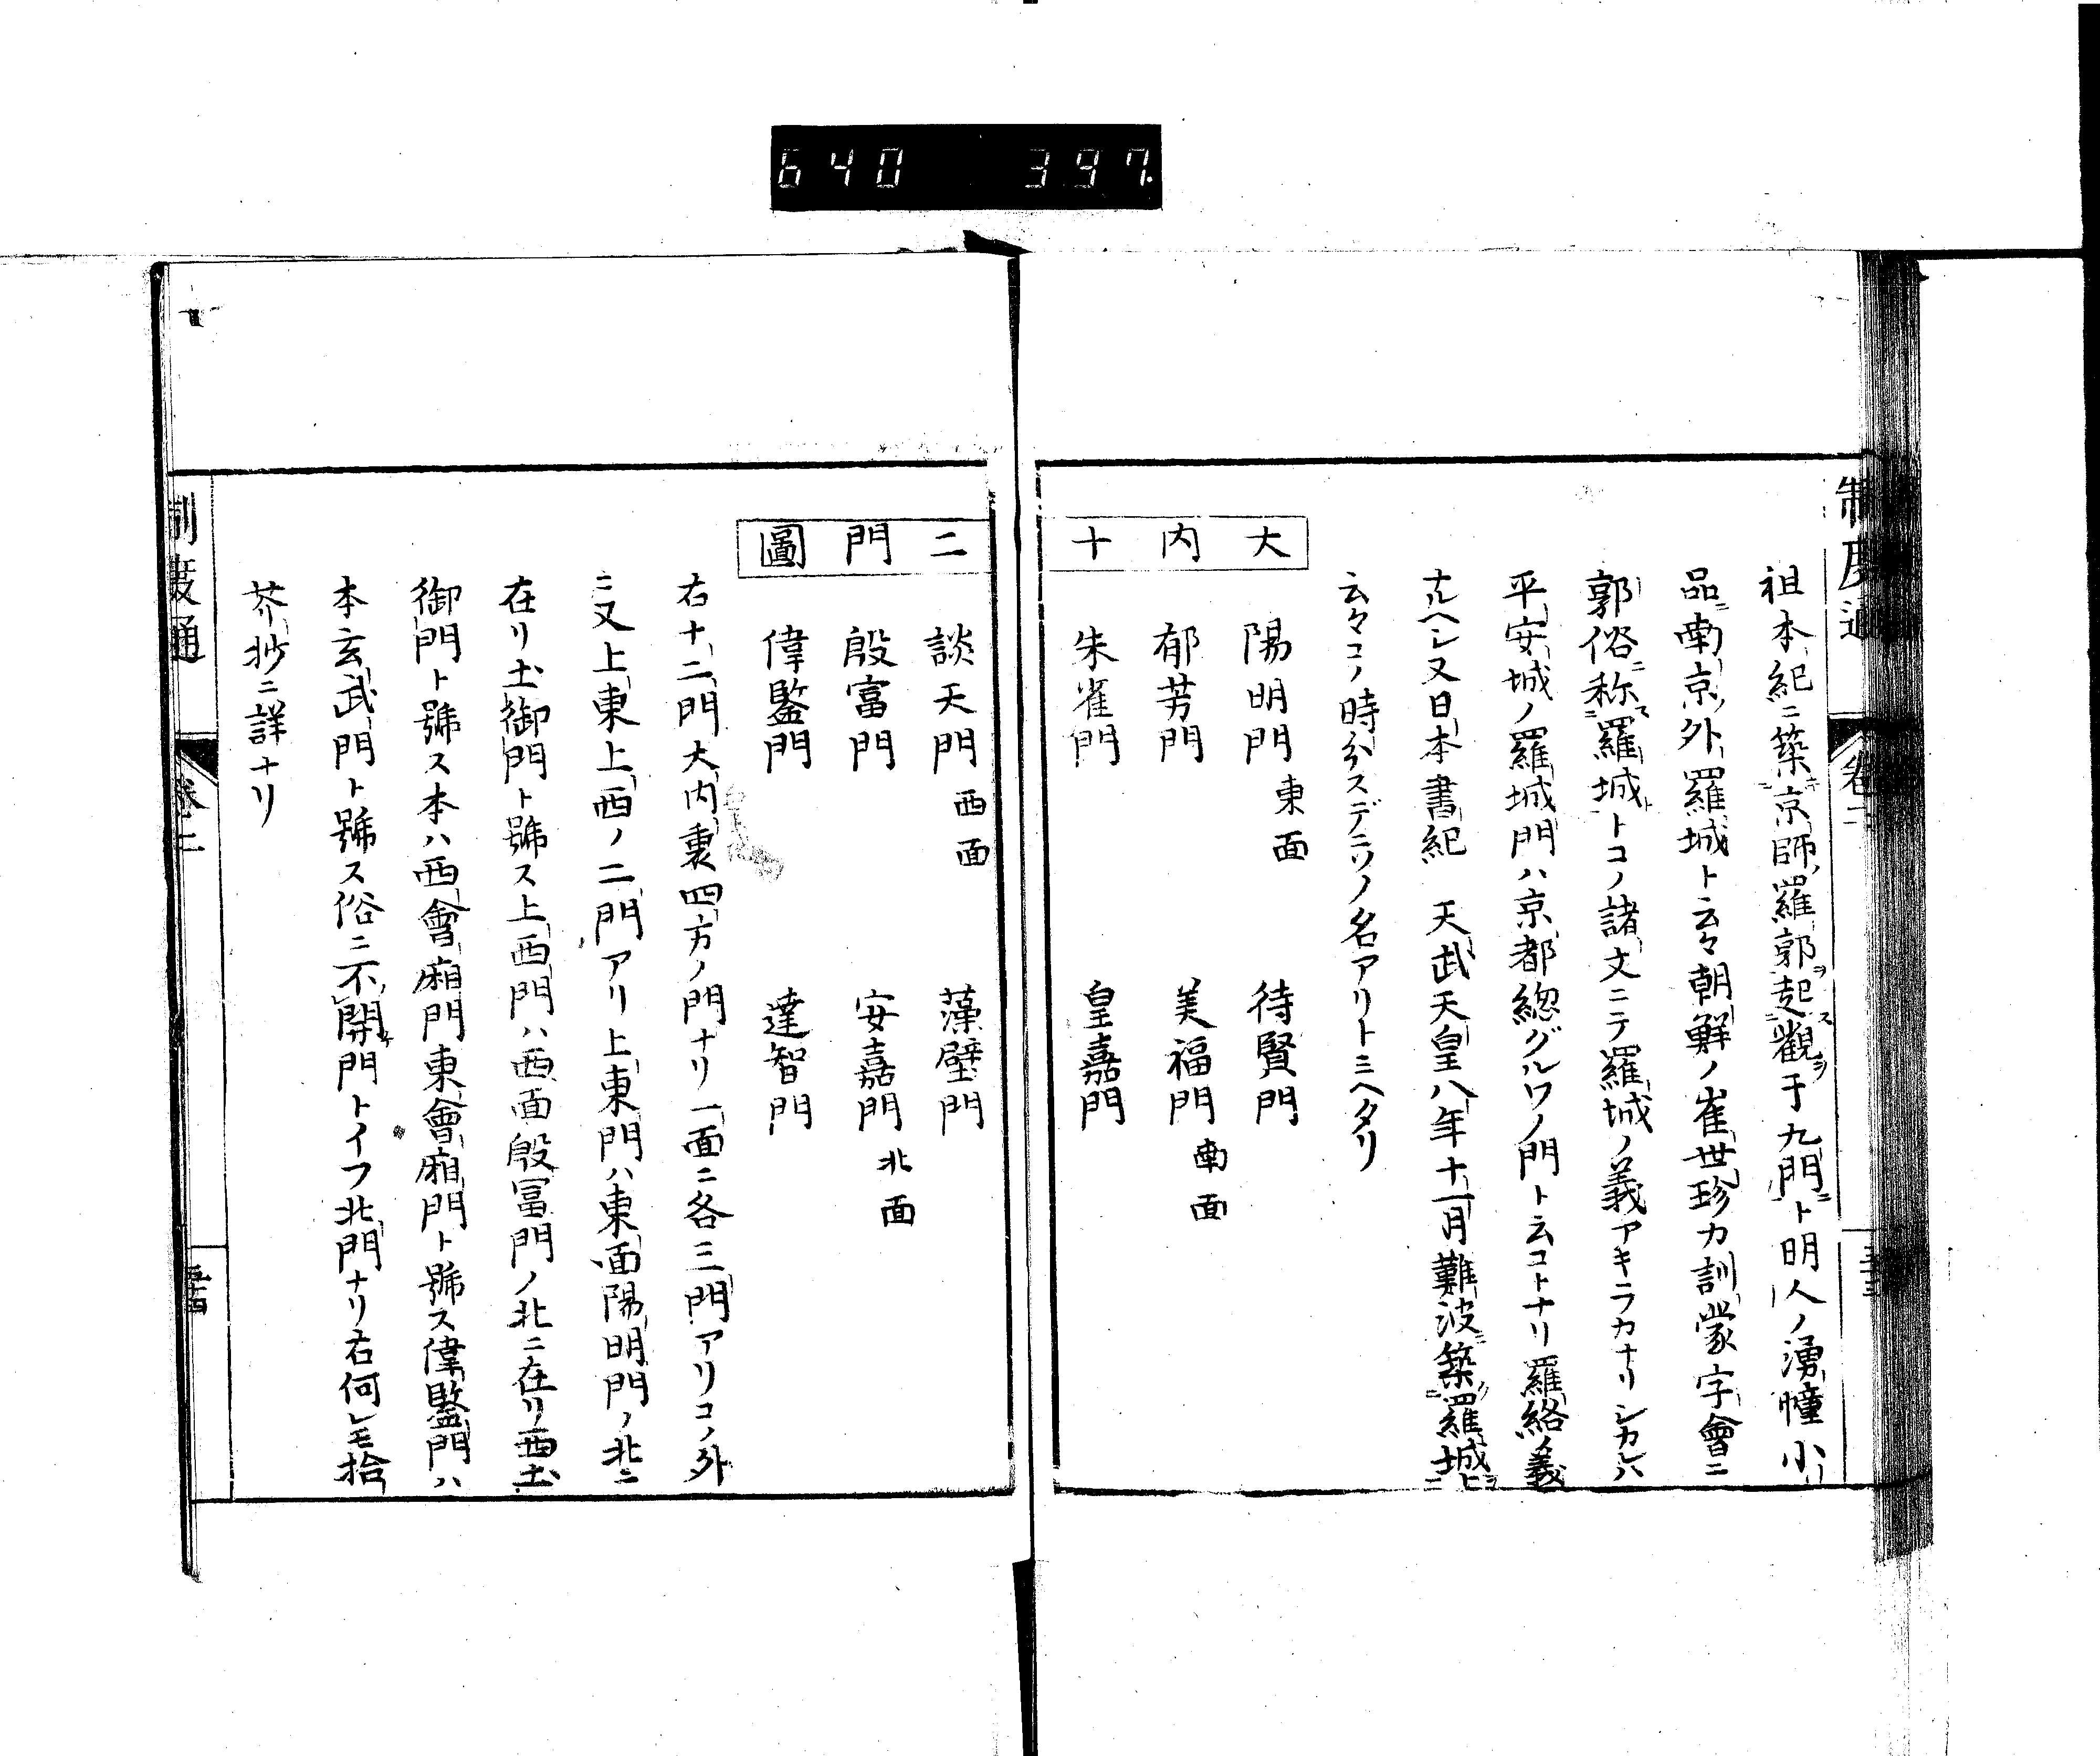 640 397.
制度通
卷二
祖本紀ニ築京師羅郭起觀于九門ト明人ノ湧幢小
品南京外羅城ト云々朝鮮ノ崔世珍カ訓蒙字會ニ
郭俗称羅城トコノ諸文ニテ羅城ノ義アキラカナリシカレハ
平安城ノ羅城門ハ京都総グルワノ門ト云コトナリ羅絡ノ義
ナルヘシ又日本書紀 天武天皇八年十一月難波築羅城ト
云々コノ時分スデニソノ名アリトミヘタリ
大内十
陽明門 東面 待賢門
郁芳門 美福門 南面
朱雀門 皇嘉門
二門圖
談天門 西面 藻壁門
殷富門 安嘉門 北面
偉鑒門 達智門
右十二門大内裏四方ノ門ナリ一面ニ各三門アリコノ外
ニ又上東上西ノ二門アリ上東門ハ東面陽明門ノ北ニ
在リ土御門ト號ス上西門ハ西面殷冨門ノ北ニ在リ西土
御門ト號ス本ハ西會廂門東會廂門ト號ス偉鑒門ハ
本玄武門ト號ス俗ニ不開門トイフ北門ナリ右何レモ拾
芥抄ニ詳ナリ
制度通
卷二